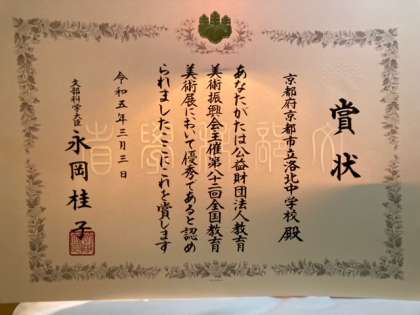 賞状
京都府京都市立洛北中学校 殿
あなたがたは公益財団法人教育
美術振興会主催第八十二回全国教育
美術展において優秀であると認め
られましたここにこれを賞します
令和五年三月三日
文部科学大臣 永岡桂子